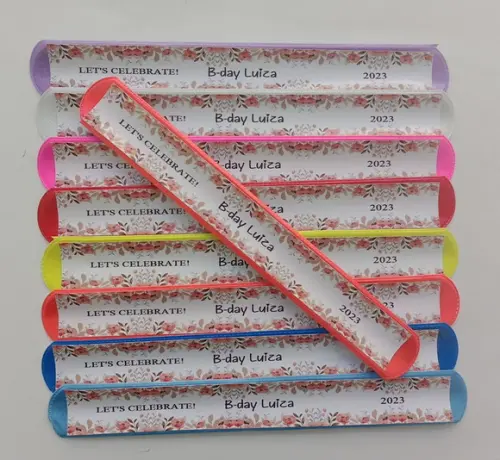 LET'S CELEBRATE! B-day Luiza 2023
B-day Luiza 2023
LET'S CELEBRATE! B-day Luiza 2023
LET'S CE B-day Luiza 2023
LET'S CELEBRATE! 2023
LET'S CELEBRATE! 2023
LET'S CELEBRATE! B-day Luiza
LET'S CELEBRATE! B-day Luiza
LET'S CELEBRATE! B-day Luiza 2023